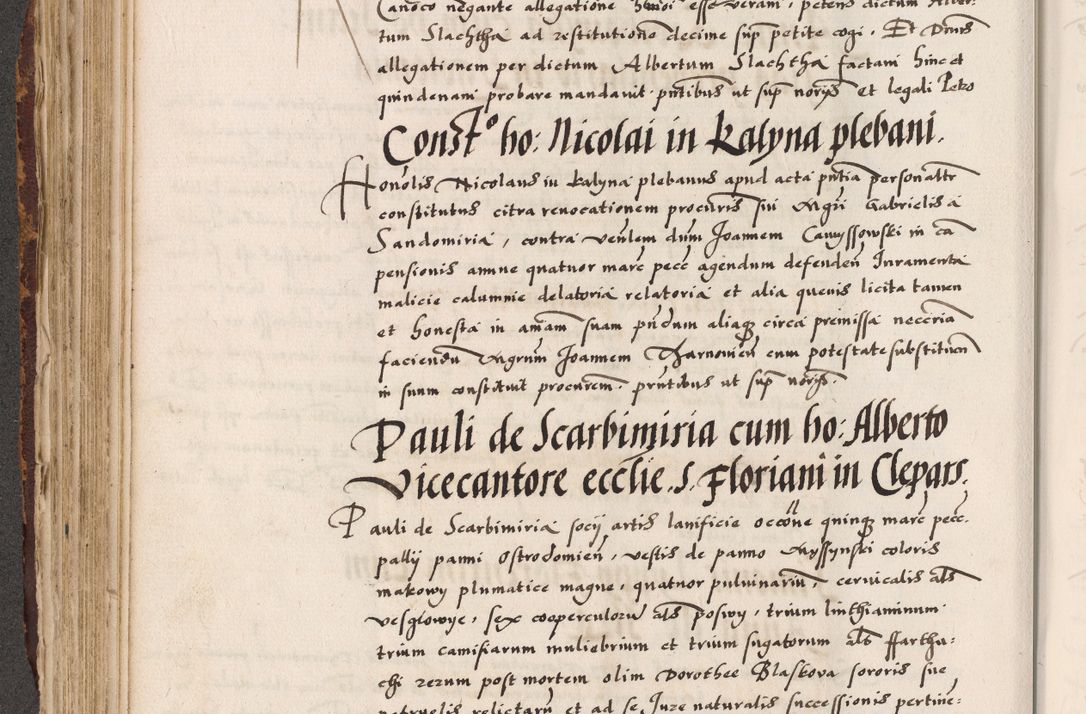 Canoco negante allegatione hmoi esse veram, petens dictum Alber-
tum Slachtha ad restitutione decime sup petite cogi. Et Dnus
allegationem per dictum Albertum Slachtha factam hinc et
quindenam probare mandavit. pntibus ut sup noryis et legali Petro
Constō ho: Nicolai in Kalyna plebani.
Honolis Nicolaus in Kalyna plebanus apud acta pntia personalr
constitutus citra revocationem procuris sui Mgri Gabrielis a
Sandomiria, contra venlem dnm Joannem Cauyssowski in ca
pensionis annue quatuor marc pecc agendum defenden Juramenta
malicie calumnie delatoria relatoria et alia quevis licita tamen
et honesta in amam suam pndum aliaq circa premissa neceria
faciendu Mgrum Joannem Tharnovien cum potestate substituen
in suum constituit procurem. pntibus ut sup noryis.
Pauli de Scarbimiria cum ho: Alberto
Vicecantore ecclie. S. Floriani in Clepars.
Pauli de Scarbimiria socij artis lanificie occone quinq marc pecc.
pallij panni Ostrodomien, vestis de panno Myssynski coloris
makowy plumatice magne, quatuor pulvinariu, cervicalis als
vesglowye, sex cooperculoru als poswy, trium linthiaminum
trium camisiarum muliebrium et trium sugatorum als ffartha:
chi rerum post mortem olim Dorothee Blaskova sororis sue
patruelis relictaru et ad se Jure naturalis successionis pertine-